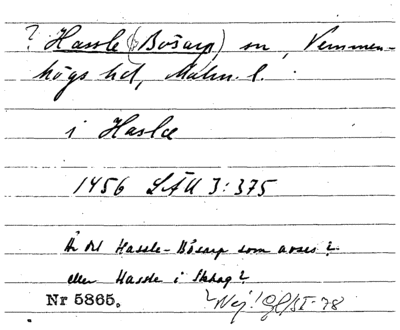 ? Hassle (Bösarp) sn, Vemmen-
högs hd, Malm. l.
i Haslæ
1456 LÄU 3:375
Är det Hassle-Bösarp som avses?
eller Hassle i Skarag?
Nr 5865.
? Nej!